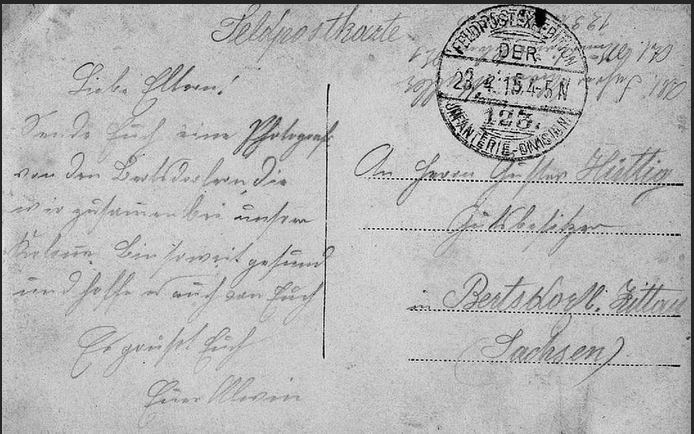 Feldpostkarte
FELDPOSTEXPEDITION
DER
23.4.15.4-5N
123.
INFANTERIE-DIVISION
Liebe Eltern!
Sende Euch eine Photograf.
von den Bertsdorfern die
wir zusammen bei unserer
Kolonne. Bin soweit gesund
und hoffe es auch von Euch
Es grüßt Euch
Euer Alwin
An Herrn Gustav Hüttig
Gutsbesitzer
in Bertsdorf b. Zittau
(Sachsen)